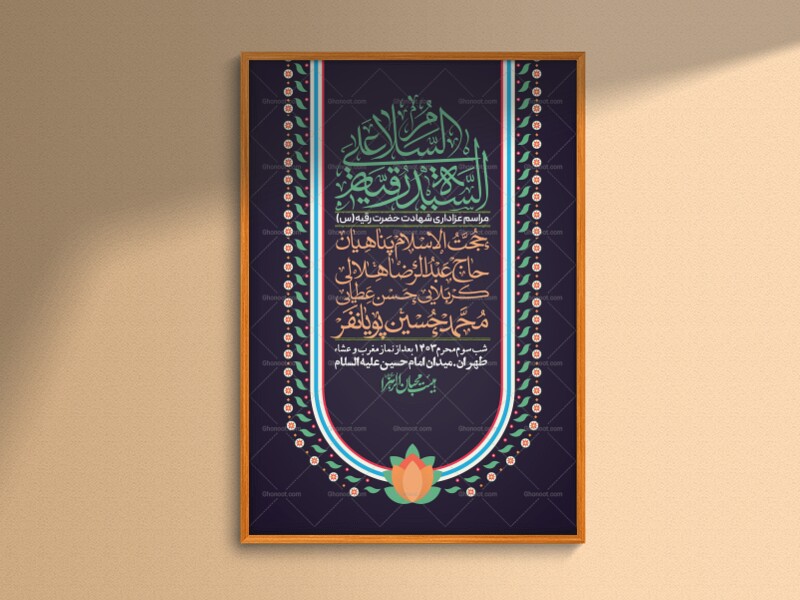 السلام علی
السیدة رقیة
مراسم عزاداری شهادت حضرت رقیه(س)
حجت الاسلام پناهیان
حاج عبدالرضا هلالی
کربلایی حسن عطایی
محمد حسین پویانفر
شب سوم محرم ۱۴۰۳ بعد از نماز مغرب و عشاء
طهران، میدان امام حسین علیه السلام
هیئت محبان الزهرا
Ghonoot.com